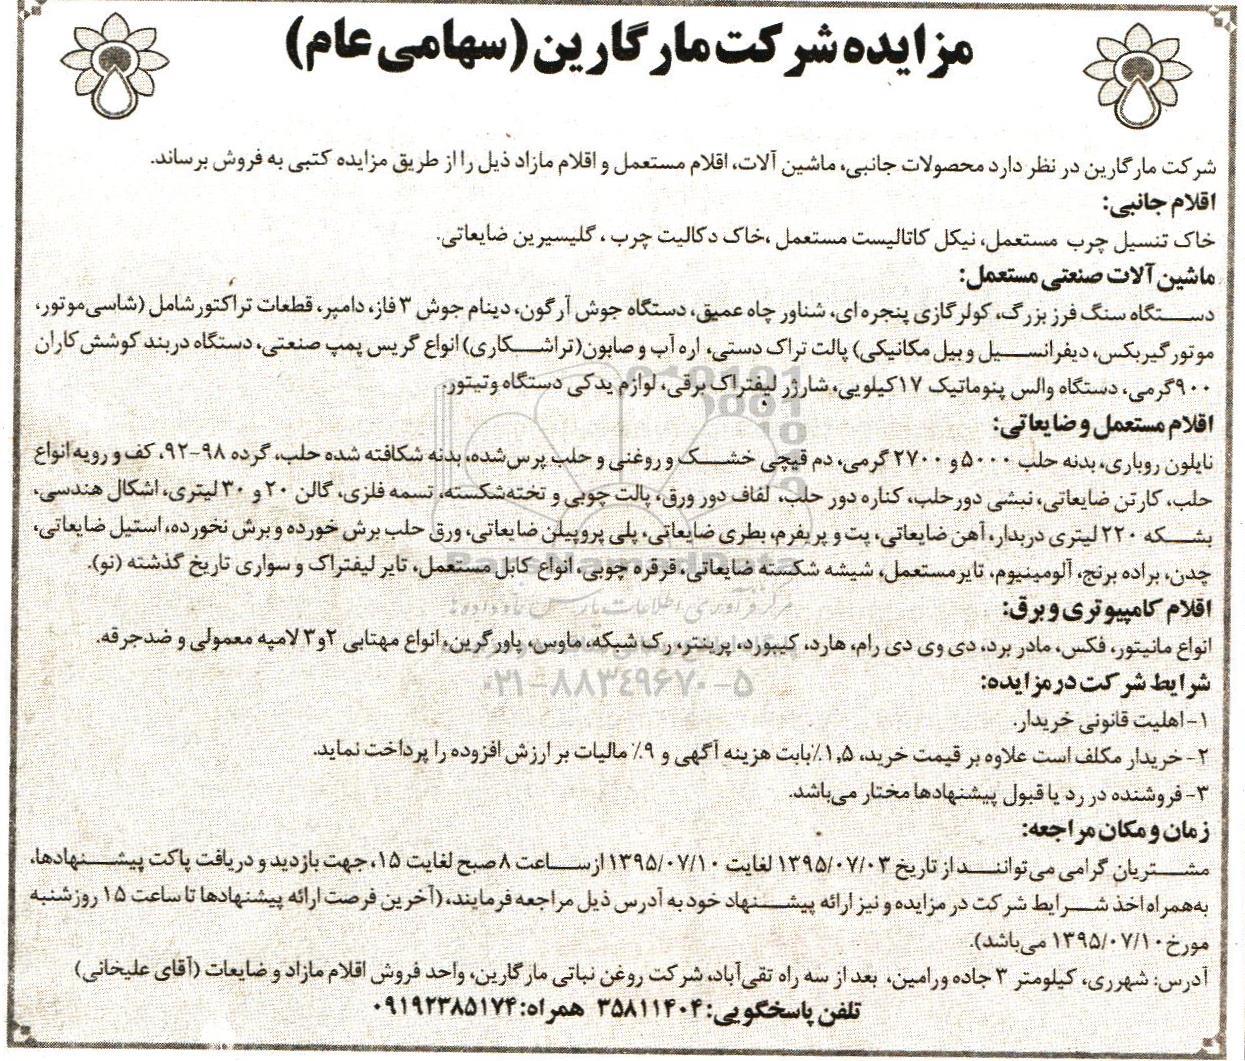 مزایده شرکت مارگارین (سهامی عام)
شرکت مارگارین در نظر دارد محصولات جانبی، ماشین آلات، اقلام مستعمل و اقلام مازاد ذیل را از طریق مزایده کتبی به فروش برساند.
اقلام جانبی:
خاک تنسیل چرب مستعمل، نیکل کاتالیست مستعمل ،خاک دکالیت چرب ، گلیسیرین ضایعاتی.
ماشین آلات صنعتی مستعمل:
دستگاه سنگ فرز بزرگ، کولرگازی پنجره ای، شناور چاه عمیق، دستگاه جوش آرگون، دینام جوش ۳ فاز، دامپر، قطعات تراکتورشامل (شاسی‌موتور،
موتورگیربکس، دیفرانسیل و بیل مکانیکی) پالت تراک دستی، اره آب و صابون(تراشکاری) انواع گریس پمپ صنعتی، دستگاه دربند کوشش کاران
۹۰۰گرمی، دستگاه والس پنوماتیک ۱۷کیلویی، شارژر لیفتراک برقی، لوازم یدکی دستگاه وتیتور.
اقلام مستعمل و ضایعاتی:
نایلون روباری، بدنه حلب ۵۰۰۰ و ۲۷۰۰ گرمی، دم قیچی خشک و روغنی و حلب پرس‌شده، بدنه شکافته شده حلب، گرده ۹۸-۹۲، کف و رویه انواع
حلب، کارتن ضایعاتی، نبشی دورحلب، کناره دور حلب، لفاف دور ورق، پالت چوبی و تخته‌شکسته، تسمه فلزی، گالن ۲۰ و ۳۰ لیتری، اشکال هندسی،
بشکه ۲۲۰ لیتری دربدار، آهن ضایعاتی، پت و پریفرم، بطری ضایعاتی، پلی پروپیلن ضایعاتی، ورق حلب برش خورده و برش نخورده، استیل ضایعاتی،
چدن، براده برنج، آلومینیوم، تایرمستعمل، شیشه شکسته ضایعاتی، قرقره چوبی، انواع کابل مستعمل، تایر لیفتراک و سواری تاریخ گذشته (نو).
اقلام کامپیوتری و برق:
انواع مانیتور، فکس، مادر برد، دی وی دی رام، هارد، کیبورد، پرینتر، رک شبکه، ماوس، پاورگرین، انواع مهتابی ۲و۳ لامپه معمولی و ضدجرقه.
شرایط شرکت در مزایده:
۱-اهلیت قانونی خریدار.
۲- خریدار مکلف است علاوه بر قیمت خرید، ۱,۵٪بابت هزینه آگهی و ۹٪ مالیات بر ارزش افزوده را پرداخت نماید.
۳- فروشنده در رد یا قبول پیشنهادها مختار می‌باشد.
زمان و مکان مراجعه:
مشتریان گرامی می‌توانند از تاریخ ۱۳۹۵/۰۷/۰۳ لغایت ۱۳۹۵/۰۷/۱۰ ازساعت ۸ صبح لغایت ۱۵، جهت بازدید و دریافت پاکت پیشنهادها،
به‌همراه اخذ شرایط شرکت در مزایده و نیز ارائه پیشنهاد خود به آدرس ذیل مراجعه فرمایند، (آخرین فرصت ارائه پیشنهادها تا ساعت ۱۵ روزشنبه
مورخ۱۳۹۵/۰۷/۱۰ می‌باشد).
آدرس: شهرری، کیلومتر ۳ جاده ورامین، بعد از سه راه تقی‌آباد، شرکت روغن نباتی مارگارین، واحد فروش اقلام مازاد و ضایعات (آقای علیخانی)
تلفن پاسخگویی: ۳۵۸۱۱۴۰۴ همراه: ۰۹۱۹۲۳۸۵۱۷۴
ParsNamadData
۰۲۱-۸۸۳۴۹۶۷۰-۵